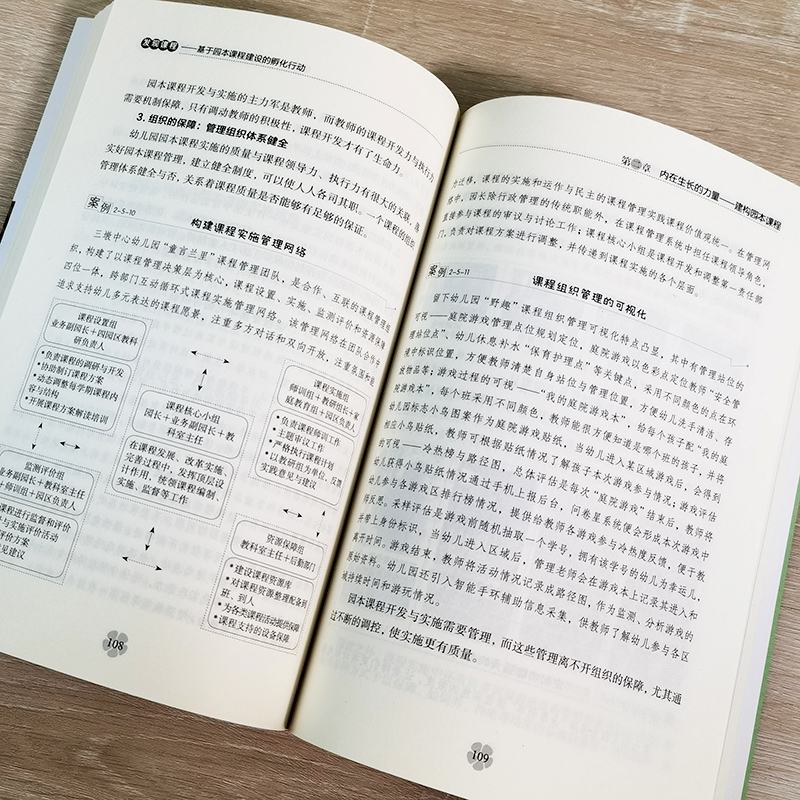 发现课程——基于园本课程建设的孵化行动
园本课程开发与实施的主力军是教师，而教师的课程开发力与执行力
需要机制保障，只有调动教师的积极性，课程开发才有了生命力。
3. 组织的保障：管理组织体系健全
幼儿园园本课程实施的质量与课程领导力、执行力有很大的关联，落
实好园本课程管理，建立健全制度，可以使人人各司其职。一个课程的组织
管理体系健全与否，关系着课程质量是否能够有足够的保证。
案例 2-5-10
构建课程实施管理网络
三墩中心幼儿园“童言兰里”课程管理团队，是合作、互联的课程管理组
织，构建了以课程管理决策层为核心，课程设置、实施、监测评价和资源保障
四位一体，跨部门互动循环式课程实施管理网络。该管理网络在团队合作中
追求支持幼儿多元表达的课程愿景，注重多方对话和双向开放，注重氛围和
课程设置组
业务副园长+四园区教科
研负责人
•负责课程的调研与开发
•协助制订课程方案
•动态调整每学期课程内
容与结构
•开展课程方案解读培训
课程核心小组
园长+业务副园长+教
科室主任
在课程发展、改革实施、
完善过程中，发挥顶层设
计作用，统领课程编制、
实施、监督等工作
课程实施组
师训组+教研组长+家
庭教育组+园区负责人
•负责课程师训工作
•主题审议工作
•严格执行课程计划
•以教研组为单位，反馈
实践意见与建议
监测评价组
业务副园长+教科室主任
+师训组+园区负责人
课程进行监督和评价
与实施评价活动
评价方案
见建议
资源保障组
教科室主任+后勤部门
•建设课程资源库
•对课程资源整理配备到
班、到人
•为各类课程活动提供保障
•课程支持的设备保障
108
第二章 内在生长的力量——建构园本课程
力迁移，课程的实施和运作与民主的课程管理实践课程价值观统一。在管理网
络中，园长除行政管理的传统职能外，在课程管理系统中担任课程领导角色，
直接参与课程的审议与讨论工作；课程核心小组是课程开发和调整第一责任部
门，负责对课程方案进行调整，并传递到课程实施的各个层面。
案例 2-5-11
课程组织管理的可视化
留下幼儿园“野趣”课程组织管理可视化特点凸显，其中有管理站位的
可视——庭院游戏管理点位规划定位，庭院游戏以色彩点定位教师“安全管
理站位点”、幼儿休息补水“保育护理点”等关键点，采用不同颜色的点在环
境中标识位置，方便教师清楚自身站位与管理位置，方便幼儿洗手清洁、存
放物品等；游戏过程的可视——“我的庭院游戏本”，给每个孩子配“我的庭
院游戏本”，每个班采用不同颜色，教师能很方便知道是哪个班的孩子，并将
幼儿园标志小鸟图案作为庭院游戏贴纸，当幼儿进入某区域游戏后，会得到
相应小鸟贴纸，教师可根据贴纸情况了解孩子本次游戏参与情况；游戏评估
的可视——冷热榜与路径图，总体评估是每次“庭院游戏”结束后，教师将
幼儿获得小鸟贴纸情况通过手机上报后台，问卷星系统便会形成本次游戏中
幼儿参与各游戏区排行榜情况，提供给教师各游戏参与冷热度反馈，便于教
师反思。采样评估是游戏前随机抽取一个学号，拥有该学号的幼儿为幸运儿，
并带上身份标识，当幼儿进入区域后，管理老师会在游戏本上记录其进入和
离开时间。游戏结束，教师将活动情况记录成路径图，作为监测、分析游戏的
原始资料。幼儿园还引入智能手环辅助信息采集，供教师了解幼儿参与各区
域持续时间和游玩情况。
园本课程开发与实施需要管理，而这些管理离不开组织的保障，尤其通
过不断的调控，使实施更有质量。
109